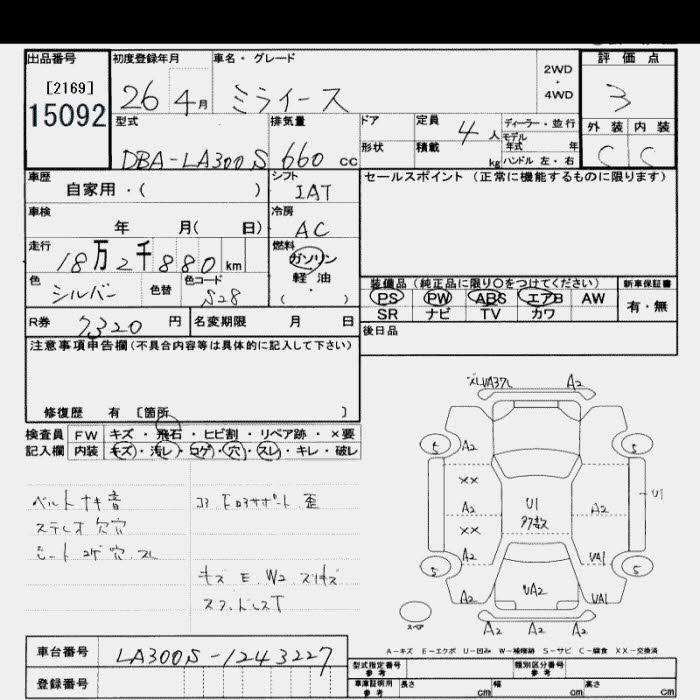 出品番号 初度登録年月 車名・グレード 2WD・4WD 評価点
[2169]
15092 26 4月 ミライース 3
型式 排気量 ドア 定員 4人 ディーラー・並行 外装 内装
モデル
DBA-LA300S 660cc 形状 積載 kg 年式 年 C C
ハンドル 左・右
車歴 シフト セールスポイント (正常に機能するものに限ります)
自家用・( ) IAT
車検 冷房
年 月( 日) AC
走行 燃料
18万2千880km ガソリン
色 色替 色コード 軽油 装備品(純正品に限り○をつけてください) 新車保証書
シルバー S28 ( ) PS PW ABS エアB AW 有・無
SR ナビ TV カワ
R券 7,320円 名変期限 月 日 後日品
注意事項申告欄(不具合内容等は具体的に記入して下さい)
修復歴 有 〔箇所 〕
検査員 FW キズ・飛石・ヒビ割・リペア跡・×要
記入欄 内装 キズ・汚レ・コゲ・穴・スレ・キレ・破レ
ベルトナキ音
ステレオ欠穴
シートコゲ穴スレ
サポート歪
キズ E W2
A2
5 A2 5
XX
A2 U1 A2 U1
XX
A2 UA1
5 5
A2 UA2 UA1
スペア A2 A2 A2
A-キズ E-エクボ U-凹み W-補修跡 S-サビ C-腐食 XX-交換済
車台番号 LA300S-1243227
型式指定番号 参考 類別区分番号 参考
登録番号 車庫証明用 参考 長さ cm 幅 cm 高さ cm